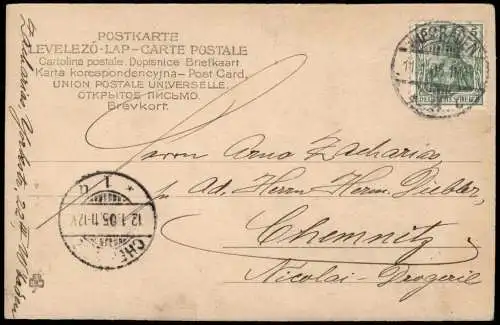 POSTKARTE
LEVELEZŐ-LAP – CARTE POSTALE
Cartolina postale. Dopisnice Briefkaart.
Karta korespondencyjna – Post Card.
UNION POSTALE UNIVERSELLE.
ОТКРЫТОЕ ПИСЬМО.
Brévkort.
Herrn Arno Zacharias
Ad. Herrn Herm.
Chemnitz
Nicolai-Drogerie
Zacharias, 22 III
12.1.05.11-12V.
CHE